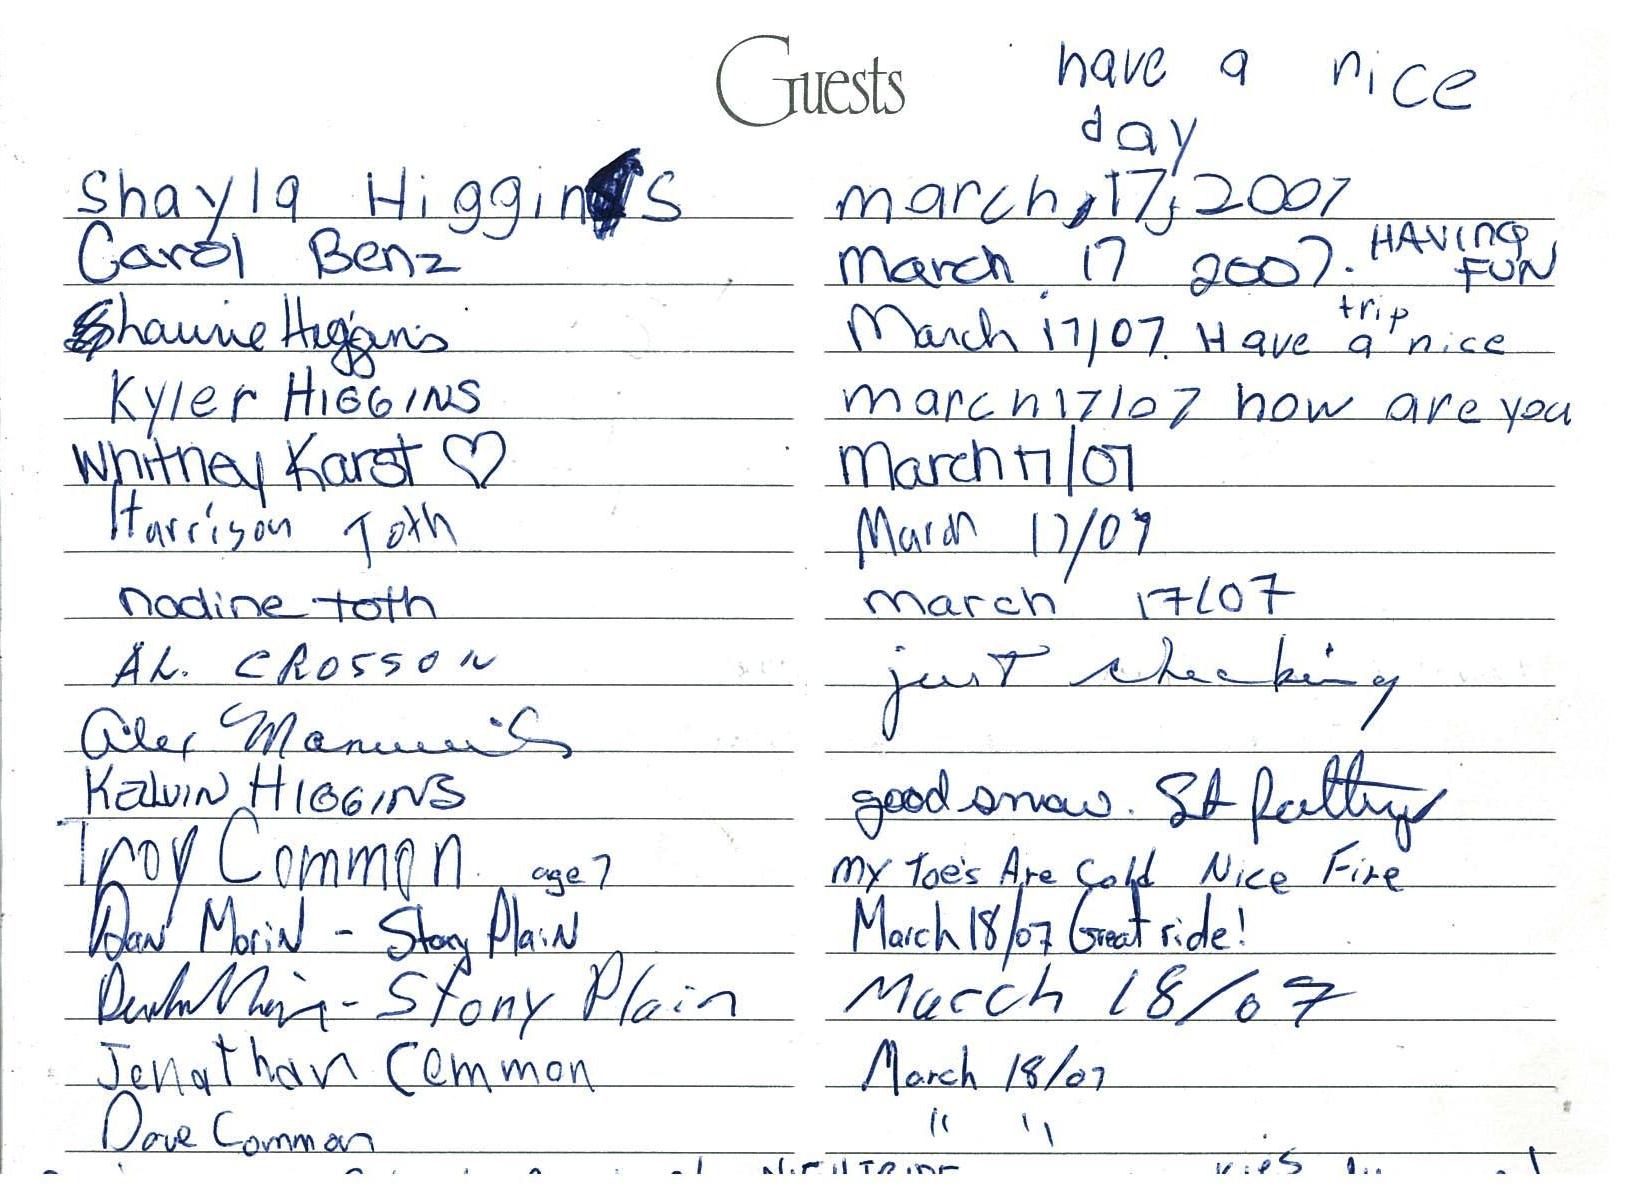 Guests
have a nice
day
Shayla Higgins march, 17, 2007
Carol Benz March 17 2007. HAVING FUN
Shaunie Higgins March 17/07. Have a nice trip
Kyler HIGGINS march 17/07 how are you
Whitney Karst ♡ March 17/07
Harrison Toth March 17/07
nadine toth march 17/07
AL. CROSSON just checking
Alex
KELVIN HIGGINS good snow. St Pattys
Troy Common age 7 My Toe's Are Cold Nice Fire
Dan Morin - Stony Plain March 18/07 Great ride!
- Stony Plain March 18/07
Jonathan Common March 18/07
Dave Common " "